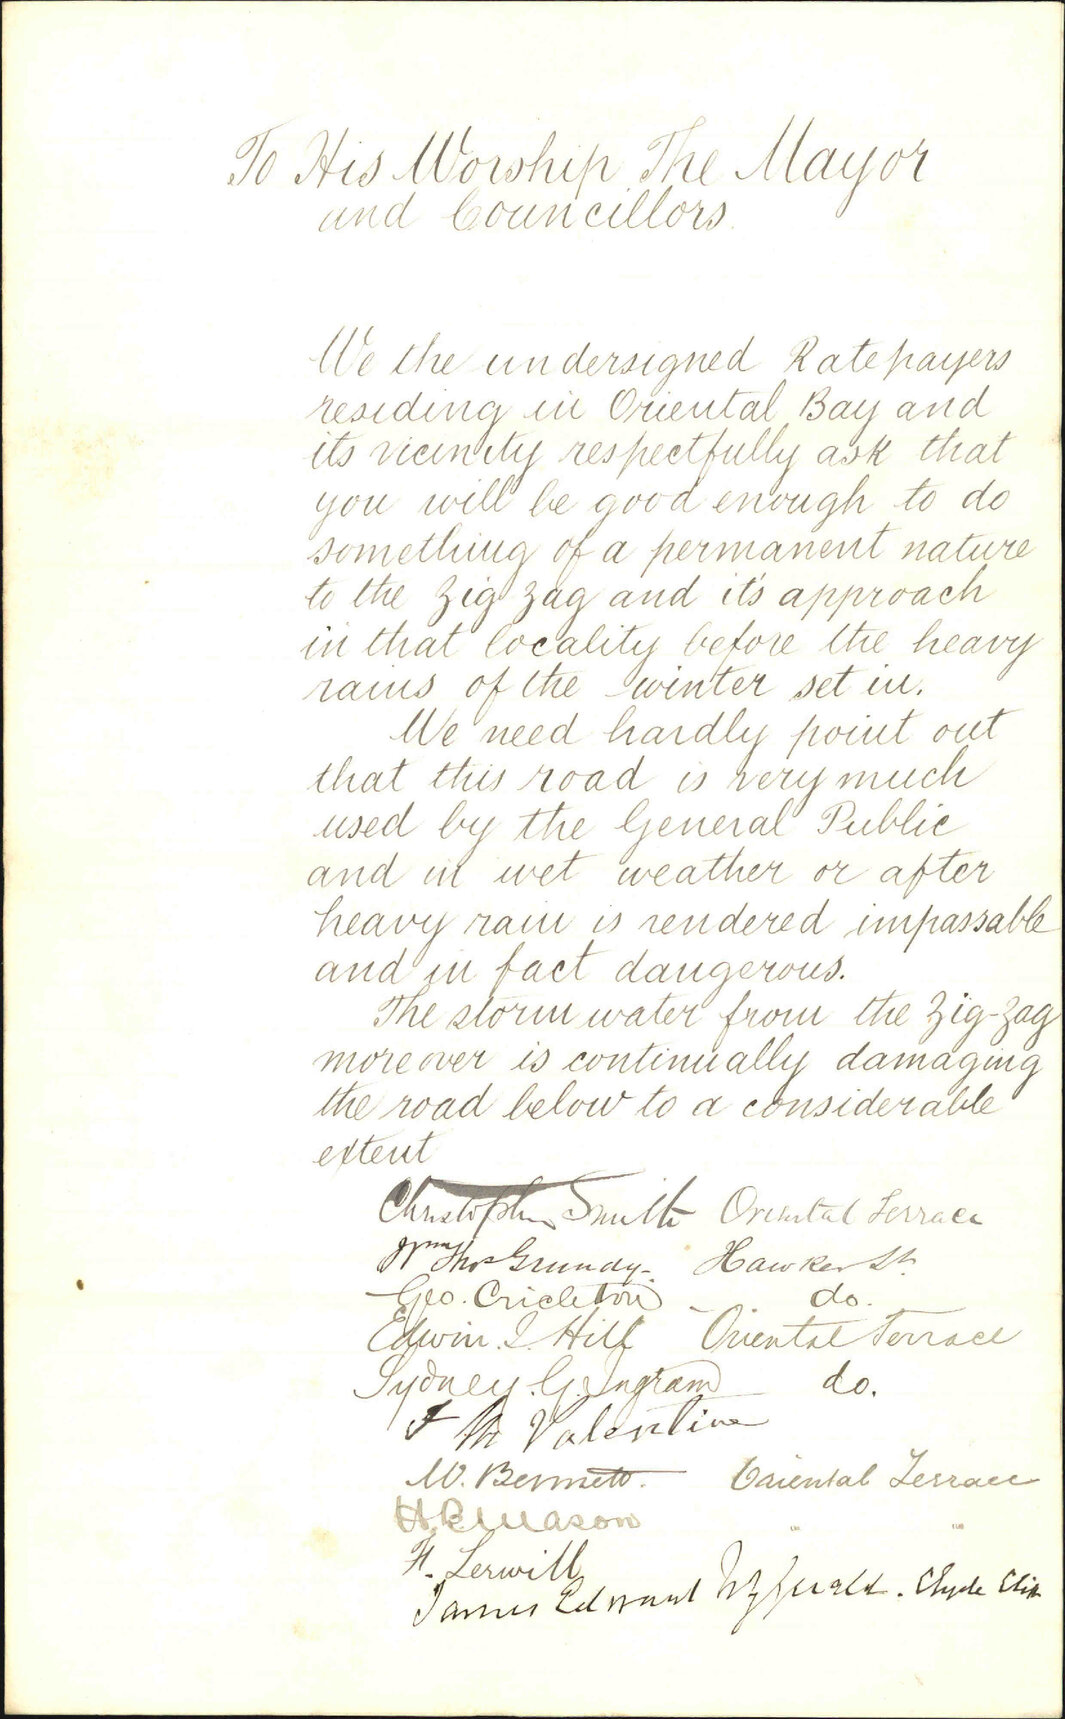 To His Worship The Mayor
and Councillors.
We the undersigned Ratepayers
residing in Oriental Bay and
its vicinity respectfully ask that
you will be good enough to do
something of a permanent nature
to the Zig Zag and it's approach
in that locality before the heavy
rains of the winter set in.
We need hardly point out
that this road is very much
used by the General Public
and in wet weather or after
heavy rain is rendered impassable
and in fact dangerous.
The storm water from the Zig-Zag
moreover is continually damaging
the road below to a considerable
extent
Christopher Smith Oriental Terrace
Wm Thos Grundy. Hawker St.
Geo. Crichton do.
Edwin Hill Oriental Terrace
Sydney. G. Ingram do.
Valentine
W. Bennett. Oriental Terrace
Mason " "
H. Lerwill
James Edward Fitzgerald. Clyde Cliff